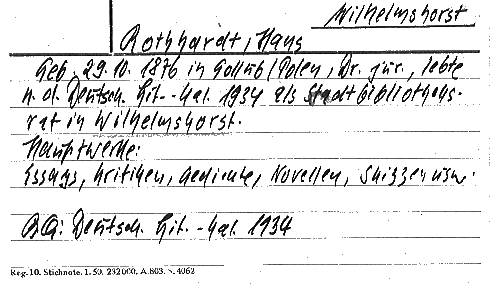 Wilhelmshorst
Rothhardt, Hans
Geb. 29.10. 1876 in Gollub/Polen, Dr. jur., lebte
n. d. Deutsch. Lit.-Kal. 1934 als Stadtbibliotheks-
rat in Wilhelmshorst.
Hauptwerke:
Essays, Kritiken, Gedichte, Novellen, Skizzen usw.
BQ: Deutsch. Lit.-Kal. 1934
Reg. 10. Stichnote. 1. 50. 232000. A. 803. 4062